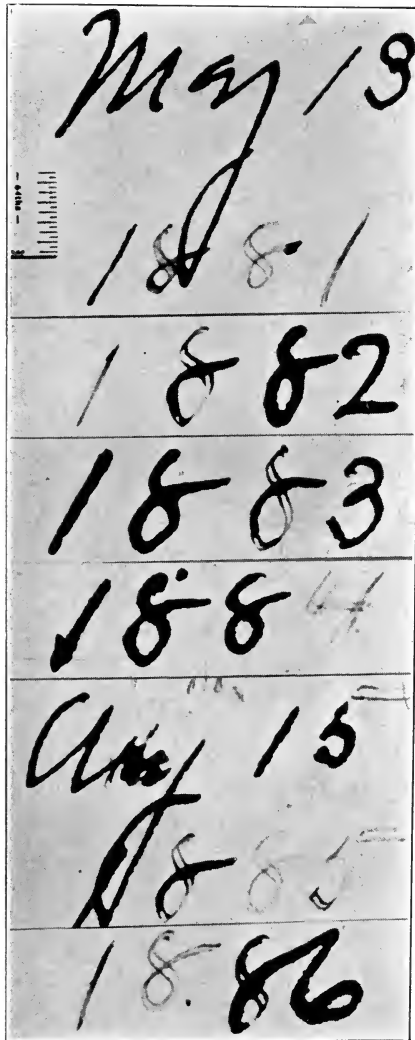 May 13
1881
1882
1883
1884
Aug 15
1885
1886